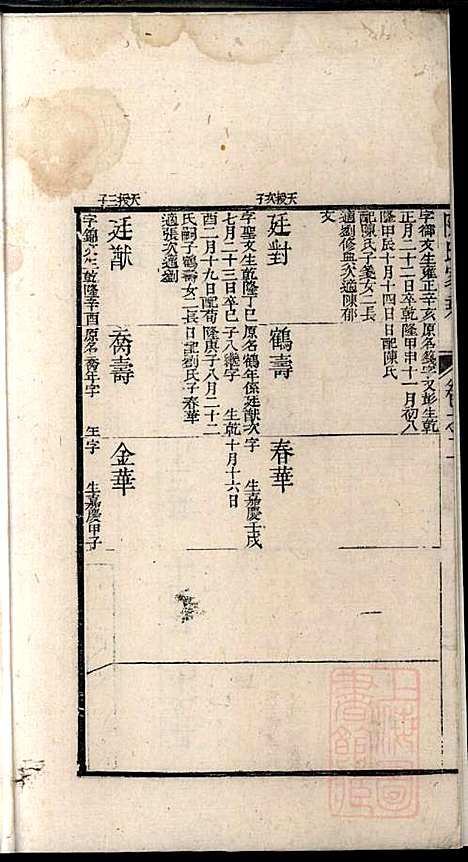 字御文生雍正辛亥
正月二十二日卒乾
隆甲辰十月十四日
配陳氏子
適劉修典次適陳郁
文
原名錢字文彭生乾
隆甲申十一月初八
日配陳氏
女二長
天授次子
廷對
字聖文生乾隆丁巳
七月二十三日卒己
酉二月十九日配
氏嗣子鶴壽女二長
適張次適劉
鶴壽
原名鶴年係廷猷次
子八
隆庚子八月二十二
日配劉氏子春華
春華
字
生嘉慶壬戌
十月十六日
天授三子
廷猷
字錦文生乾隆辛酉
喬壽
原名喬年字
金華
字
生嘉慶甲子
上海圖書館藏